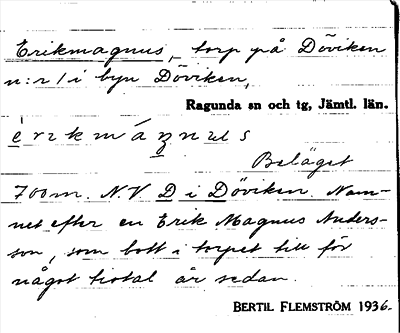 Erikmagnus, torp på Döviken
n:r 1 i byn Döviken,
Ragunda sn och tg, Jämtl. län.
è r ɩ k m á ŋ n u l s
Beläget
700 m. N.V D i Döviken. Nam-
net efter en Erik Magnus Anders-
son, som bott i torpet till för
något tiotal år sedan.
BERTIL FLEMSTRÖM 1936.